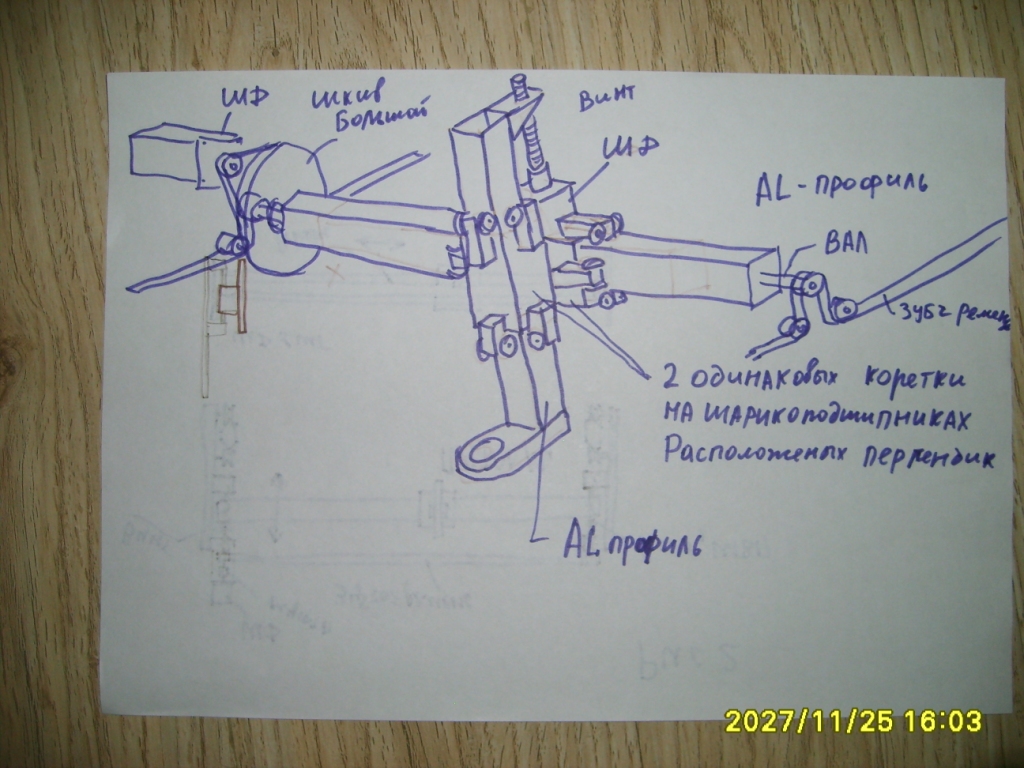 ШД
шкив
Большой
винт
ШД
AL-профиль
ВАЛ
зубч ремень
2 одинаковых коретки
на шарикоподшипниках
Расположеных перпендик
AL профиль
Рис 2
2027/11/25 16:03